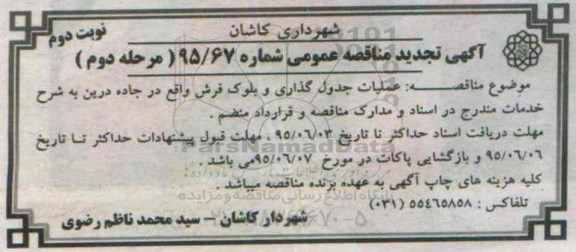 شهرداری کاشان
نوبت دوم
آگهی تجدید مناقصه عمومی شماره ۹۵/۶۷ ( مرحله دوم )
موضوع مناقصه: عملیات جدول گذاری و بلوک فرش واقع در جاده درین به شرح
خدمات مندرج در اسناد و مدارک مناقصه و قرارداد منضم .
مهلت دریافت اسناد حداکثر تا تاریخ ۹۵/۰۶/۰۳ ، مهلت قبول پیشنهادات حداکثر تا تاریخ
۹۵/۰۶/۰۶ و بازگشایی پاکات در مورخ ۹۵/۰۶/۰۷ می باشد .
کلیه هزینه های چاپ آگهی به عهده برنده مناقصه میباشد .
تلفاکس : ۵۵۴۶۵۸۵۸ (۰۳۱)
شهردار کاشان – سید محمد ناظم رضوی
ParsNamadData
پایگاه اطلاع رسانی مناقصه و مزایده